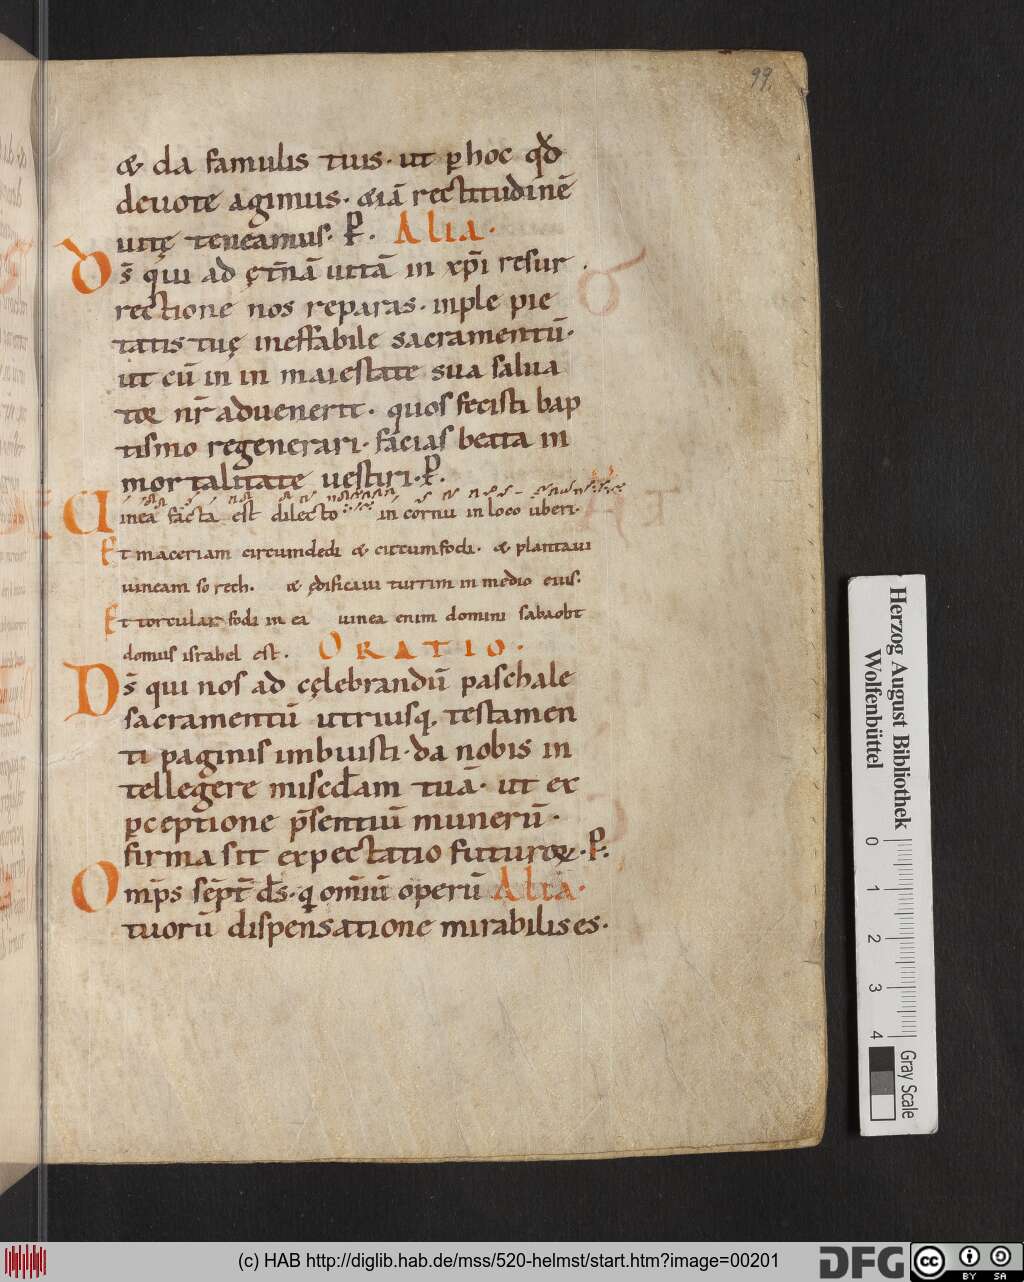 99.
& da famulis tuis· ut ꝑ hoc qđ
deuote agimus· &iā rectitudinē
uitę teneamus· P̲. Alia·
D̄s qui ad ęt̄nā uitā in xp̄i resur
rectione nos reparas· inple pie
tatis tuę ineffabile sacramentū·
ut cū in in maiestate sua salua
toꝛ nr̄ aduenerit· quos fecisti bap
tismo regenerari· facias beata in
mortalitate uestiri· P̲.
Uinea facta est dilecto in cornu in loco uberi·
Et maceriam circumdedi & circumfodi· & plantaui
uineam sorech. & ędificaui turrim in medio eius·
Et torcular fodi in ea uinea enim domini sabaobt
domus israhel est. ORATIO·
D̄s qui nos ad cęlebrandū paschale
sacramentū utriusq, testamen
ti paginis imbuisti· da nobis in
tellegere misedam tuā· ut ex
ꝑceptione p̄sentiū munerū·
firma sit expectatio futuroꝝ· P̲.
Omp̄s sēpt̄ ds̄· q̄ om̄iū operū Alia·
tuorū dispensatione mirabilis es·
Herzog August Bibliothek
Wolfenbüttel
0 1 2 3 4
Gray Scale
(c) HAB http://diglib.hab.de/mss/520-helmst/start.htm?image=00201
DFG
cc BY SA